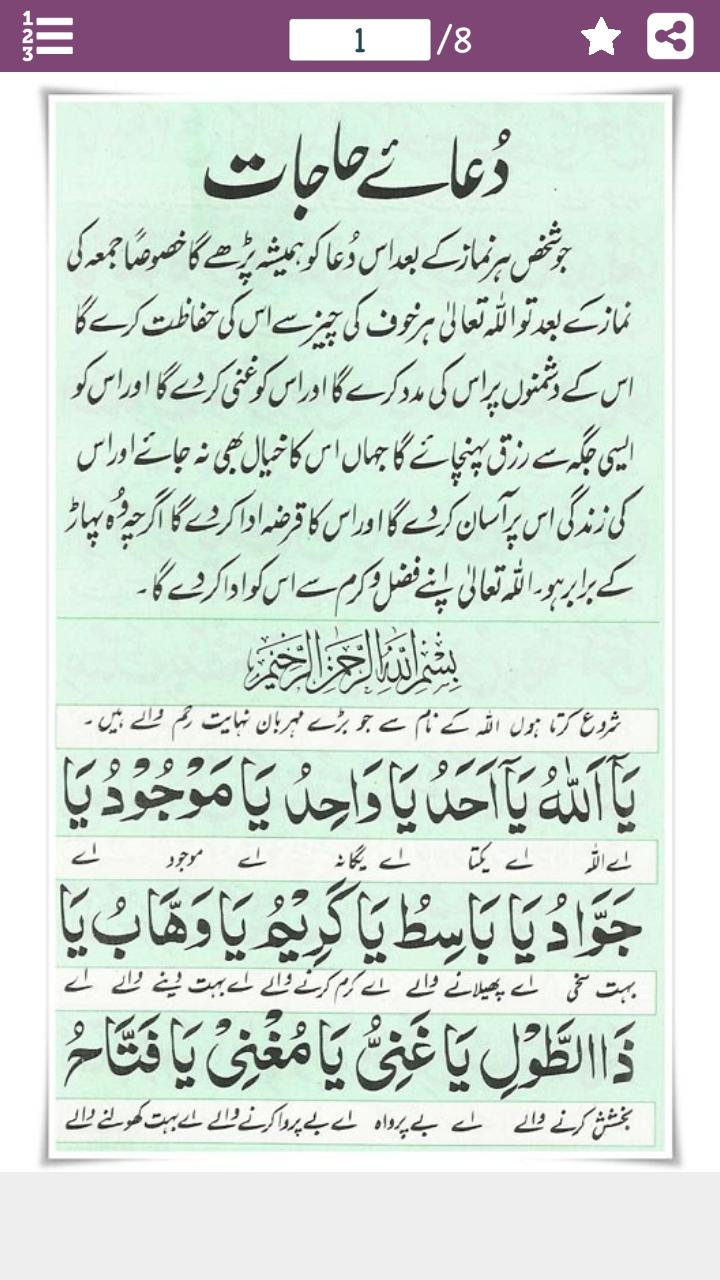 1
2
3
1 /8
دُعائے حاجات
جو شخص ہر نماز کے بعد اس دُعا کو ہمیشہ پڑھے گا خصوصًا جمعہ کی
نماز کے بعد تو اللہ تعالیٰ ہر خوف کی چیز سے اس کی حفاظت کرے گا
اس کے دشمنوں پر اس کی مدد کرے گا اور اس کو غنی کر دے گا اور اس کو
ایسی جگہ سے رزق پہنچائے گا جہاں اس کا خیال بھی نہ جائے اور اس
کی زندگی اس پر آسان کر دے گا اور اس کا قرضہ ادا کر دے گا اگرچہ وُہ پہاڑ
کے برابر ہو۔ اللہ تعالیٰ اپنے فضل و کرم سے اس کو ادا کر دے گا۔
بِسْمِ اللهِ الرَّحْمٰنِ الرَّحِيْمِ
شروع کرتا ہوں اللہ کے نام سے جو بڑے مہربان نہایت رحم والے ہیں۔
يَآ اَللّٰهُ يَآ اَحَدُ يَا وَاحِدُ يَا مَوْجُوْدُ يَا
اے اللہ اے یکتا اے یگانہ اے موجود اے
جَوَّادُ يَا بَاسِطُ يَا كَرِيْمُ يَا وَهَّابُ يَا
بہت سخی اے پھیلانے والے اے کرم کرنے والے اے بہت دینے والے اے
ذَا الطَّوْلِ يَا غَنِىُّ يَا مُغْنِىْ يَا فَتَّاحُ
بخشش کرنے والے اے بے پرواہ اے بے پروا کرنے والے اے بہت کھولنے والے